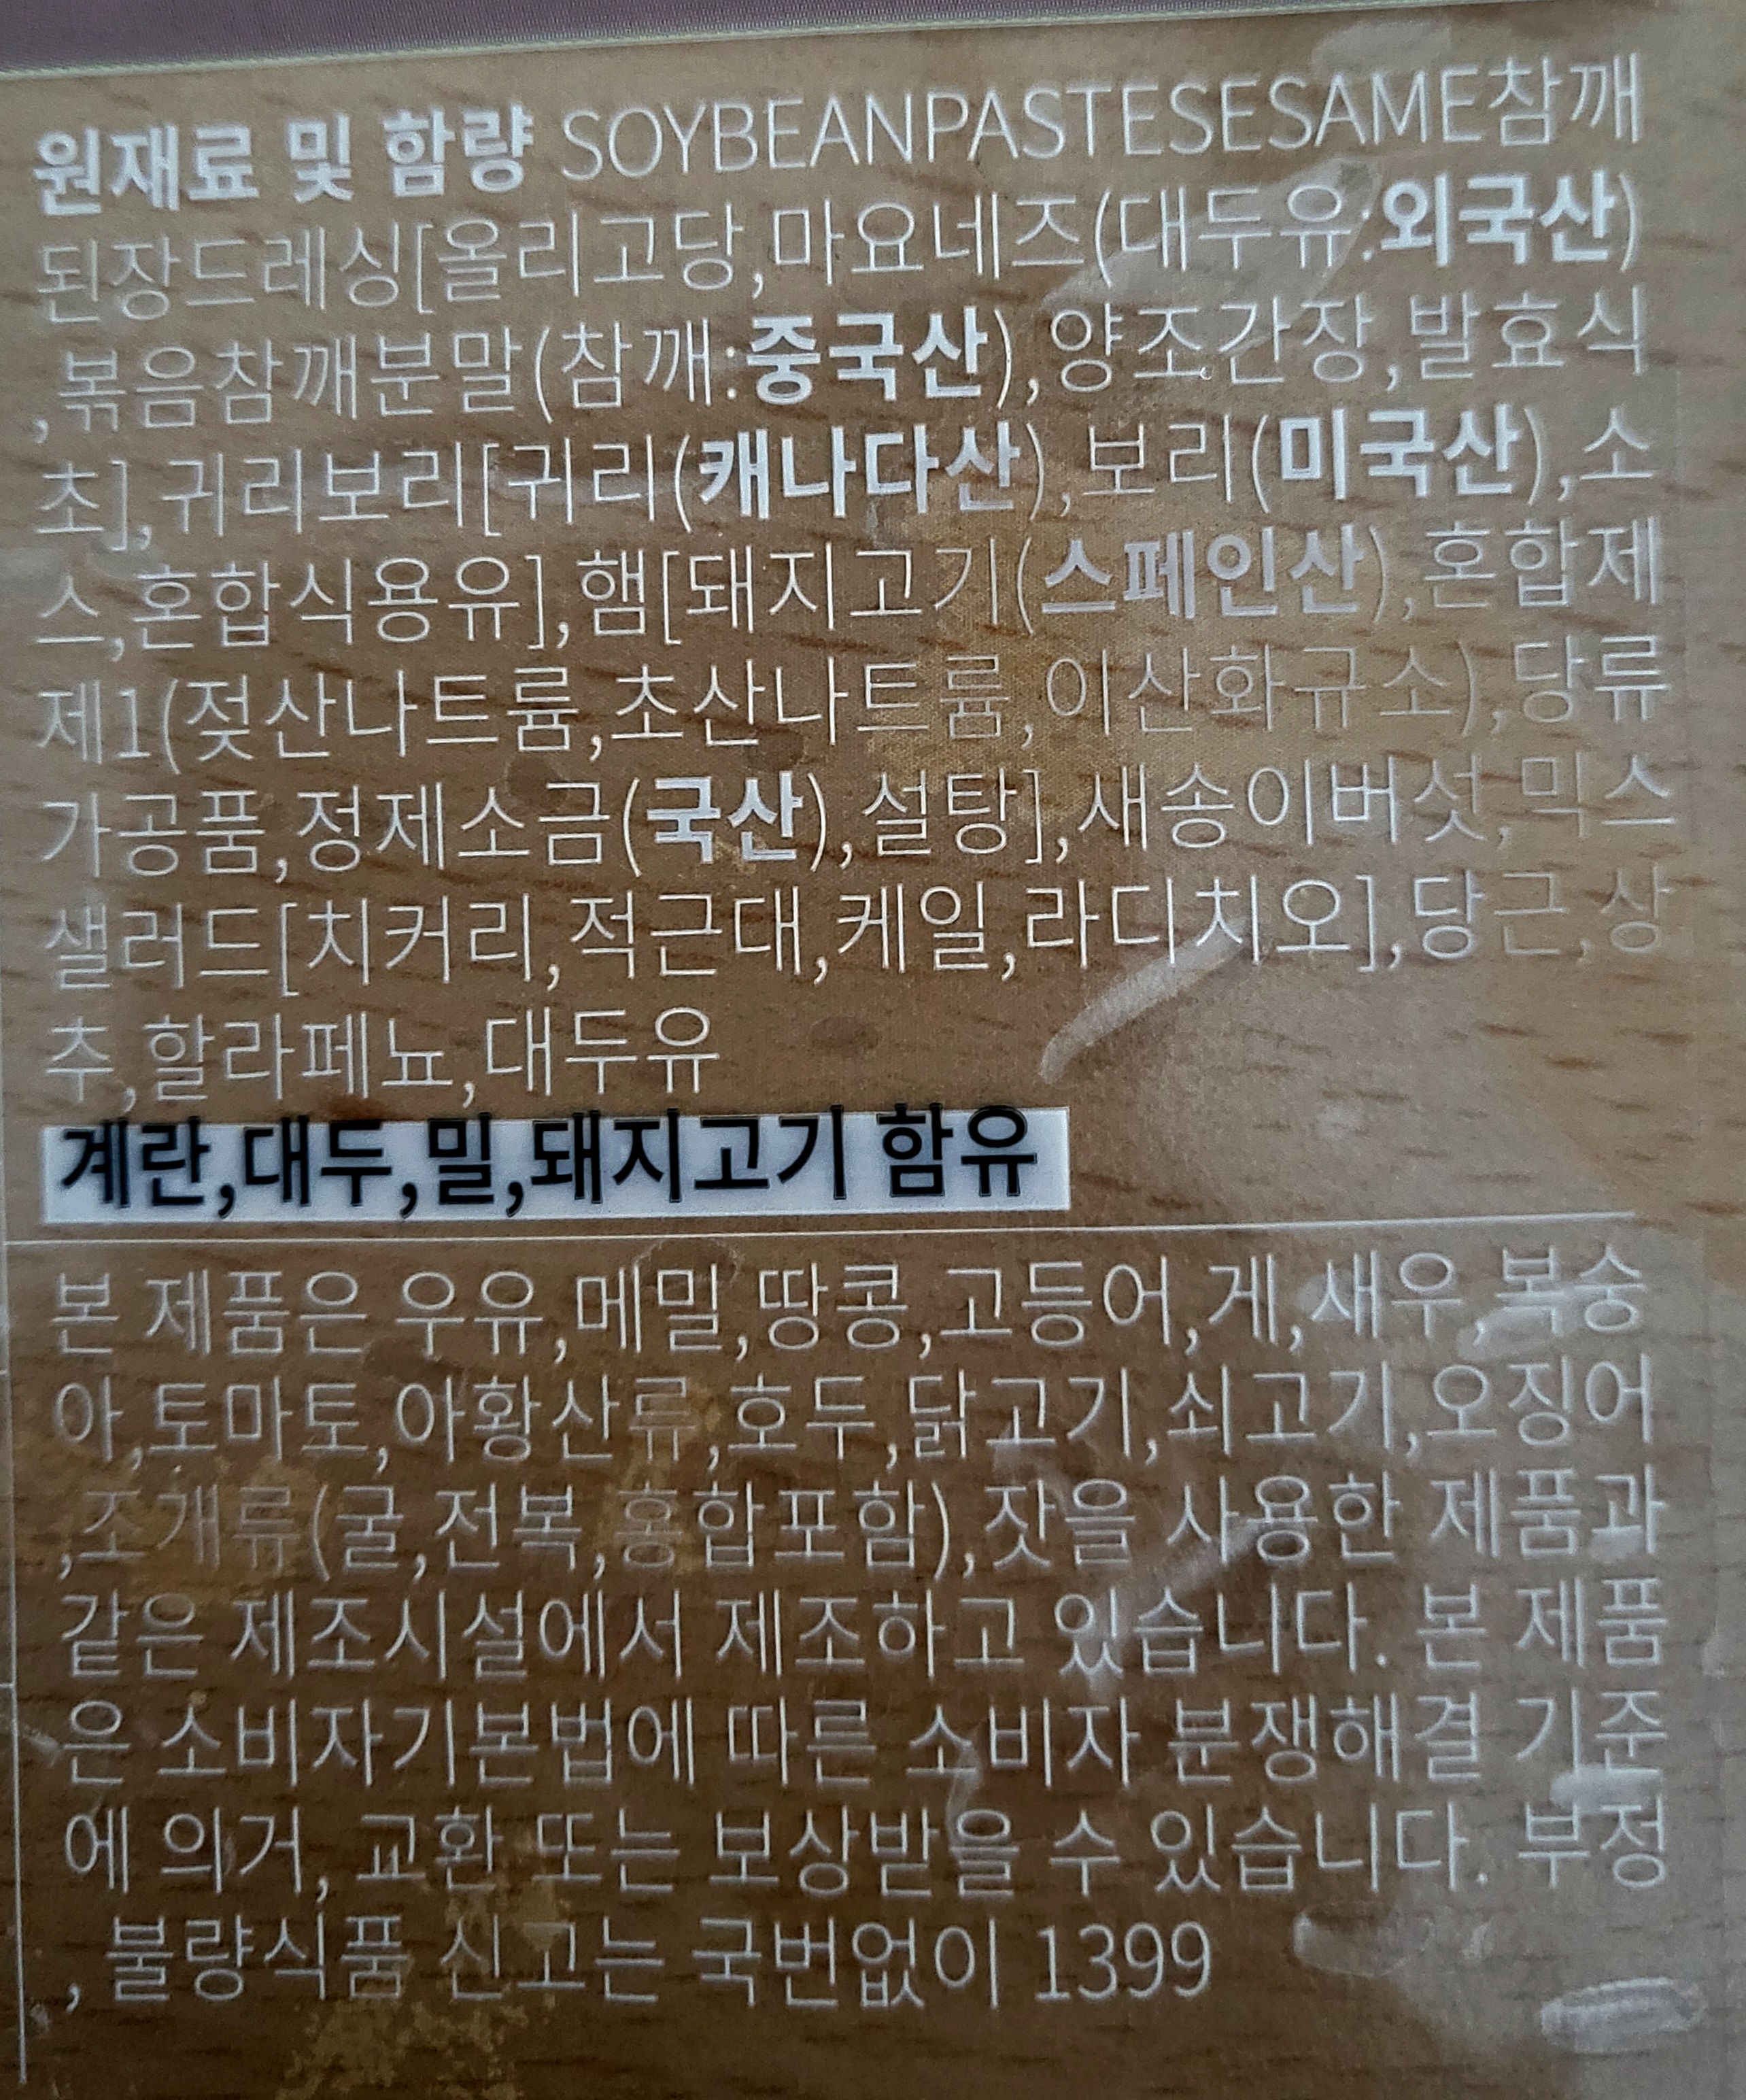 원재료 및 함량 SOYBEANPASTESESAME참깨
된장드레싱[올리고당,마요네즈(대두유:외국산)
,볶음참깨분말(참깨:중국산),양조간장,발효식
초],귀리보리[귀리(캐나다산),보리(미국산),소
스,혼합식용유],햄[돼지고기(스페인산),혼합제
제1(젖산나트륨,초산나트륨,이산화규소),당류
가공품,정제소금(국산),설탕],새송이버섯,믹스
샐러드[치커리,적근대,케일,라디치오],당근,상
추,할라페뇨,대두유
계란,대두,밀,돼지고기 함유
본 제품은 우유,메밀,땅콩,고등어,게,새우,복숭
아,토마토,아황산류,호두,닭고기,쇠고기,오징어
,조개류(굴,전복,홍합포함),잣을 사용한 제품과
같은 제조시설에서 제조하고 있습니다. 본 제품
은 소비자기본법에 따른 소비자 분쟁해결 기준
에 의거, 교환 또는 보상받을 수 있습니다. 부정
, 불량식품 신고는 국번없이 1399